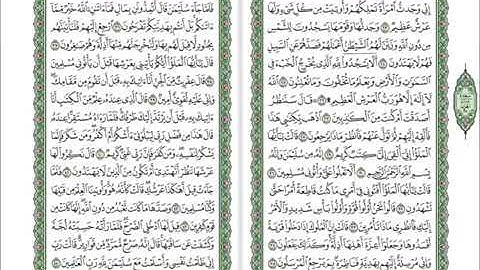 إِنِّي وَجَدتُّ امْرَأَةً تَمْلِكُهُمْ وَأُوتِيَتْ مِن كُلِّ شَيْءٍ وَلَهَا
عَرْشٌ عَظِيمٌ ٢٣ وَجَدتُّهَا وَقَوْمَهَا يَسْجُدُونَ لِلشَّمْسِ
مِن دُونِ اللَّهِ وَزَيَّنَ لَهُمُ الشَّيْطَٰنُ أَعْمَٰلَهُمْ فَصَدَّهُمْ عَنِ السَّبِيلِ
فَهُمْ لَا يَهْتَدُونَ ٢٤ أَلَّا يَسْجُدُوا لِلَّهِ الَّذِي يُخْرِجُ الْخَبْءَ فِي
السَّمَٰوَٰتِ وَالْأَرْضِ وَيَعْلَمُ مَا تُخْفُونَ وَمَا تُعْلِنُونَ ٢٥
اللَّهُ لَا إِلَٰهَ إِلَّا هُوَ رَبُّ الْعَرْشِ الْعَظِيمِ ٢٦ قَالَ سَنَنظُرُ
أَصَدَقْتَ أَمْ كُنتَ مِنَ الْكَٰذِبِينَ ٢٧ اذْهَب بِّكِتَٰبِي هَٰذَا
فَأَلْقِهْ إِلَيْهِمْ ثُمَّ تَوَلَّ عَنْهُمْ فَانظُرْ مَاذَا يَرْجِعُونَ ٢٨ قَالَتْ
يَٰأَيُّهَا الْمَلَؤُا إِنِّي أُلْقِيَ إِلَيَّ كِتَٰبٌ كَرِيمٌ ٢٩ إِنَّهُ مِن سُلَيْمَٰنَ وَإِنَّهُ
بِسْمِ اللَّهِ الرَّحْمَٰنِ الرَّحِيمِ ٣٠ أَلَّا تَعْلُوا عَلَيَّ وَأْتُونِي مُسْلِمِينَ ٣١
قَالَتْ يَٰأَيُّهَا الْمَلَؤُا أَفْتُونِي فِي أَمْرِي مَا كُنتُ قَاطِعَةً أَمْرًا حَتَّىٰ
تَشْهَدُونِ ٣٢ قَالُوا نَحْنُ أُولُوا قُوَّةٍ وَأُولُوا بَأْسٍ شَدِيدٍ وَالْأَمْرُ
إِلَيْكِ فَانظُرِي مَاذَا تَأْمُرِينَ ٣٣ قَالَتْ إِنَّ الْمُلُوكَ إِذَا دَخَلُوا
قَرْيَةً أَفْسَدُوهَا وَجَعَلُوا أَعِزَّةَ أَهْلِهَا أَذِلَّةً وَكَذَٰلِكَ يَفْعَلُونَ ٣٤
وَإِنِّي مُرْسِلَةٌ إِلَيْهِم بِهَدِيَّةٍ فَنَاظِرَةٌ بِمَ يَرْجِعُ الْمُرْسَلُونَ ٣٥
فَلَمَّا جَاءَ سُلَيْمَٰنَ قَالَ أَتُمِدُّونَنِ بِمَالٍ فَمَا ءَاتَىٰنِ اللَّهُ خَيْرٌ مِّمَّا
ءَاتَىٰكُم بَلْ أَنتُم بِهَدِيَّتِكُمْ تَفْرَحُونَ ٣٦ ارْجِعْ إِلَيْهِمْ فَلَنَأْتِيَنَّهُم
بِجُنُودٍ لَّا قِبَلَ لَهُم بِهَا وَلَنُخْرِجَنَّهُم مِّنْهَا أَذِلَّةً وَهُمْ صَٰغِرُونَ ٣٧
قَالَ يَٰأَيُّهَا الْمَلَؤُا أَيُّكُمْ يَأْتِينِي بِعَرْشِهَا قَبْلَ أَن يَأْتُونِي مُسْلِمِينَ
٣٨ قَالَ عِفْرِيتٌ مِّنَ الْجِنِّ أَنَا ءَاتِيكَ بِهِ قَبْلَ أَن تَقُومَ مِن مَّقَامِكَ
وَإِنِّي عَلَيْهِ لَقَوِيٌّ أَمِينٌ ٣٩ قَالَ الَّذِي عِندَهُ عِلْمٌ مِّنَ الْكِتَٰبِ أَنَا
ءَاتِيكَ بِهِ قَبْلَ أَن يَرْتَدَّ إِلَيْكَ طَرْفُكَ فَلَمَّا رَءَاهُ مُسْتَقِرًّا عِندَهُ
قَالَ هَٰذَا مِن فَضْلِ رَبِّي لِيَبْلُوَنِي ءَأَشْكُرُ أَمْ أَكْفُرُ وَمَن شَكَرَ فَإِنَّمَا
يَشْكُرُ لِنَفْسِهِ وَمَن كَفَرَ فَإِنَّ رَبِّي غَنِيٌّ كَرِيمٌ ٤٠ قَالَ نَكِّرُوا لَهَا
عَرْشَهَا نَنظُرْ أَتَهْتَدِي أَمْ تَكُونُ مِنَ الَّذِينَ لَا يَهْتَدُونَ ٤١ فَلَمَّا
جَاءَتْ قِيلَ أَهَٰكَذَا عَرْشُكِ قَالَتْ كَأَنَّهُ هُوَ وَأُوتِينَا الْعِلْمَ مِن قَبْلِهَا
وَكُنَّا مُسْلِمِينَ ٤٢ وَصَدَّهَا مَا كَانَت تَّعْبُدُ مِن دُونِ اللَّهِ إِنَّهَا كَانَتْ مِن
قَوْمٍ كَٰفِرِينَ ٤٣ قِيلَ لَهَا ادْخُلِي الصَّرْحَ فَلَمَّا رَأَتْهُ حَسِبَتْهُ لُجَّةً
وَكَشَفَتْ عَن سَاقَيْهَا قَالَ إِنَّهُ صَرْحٌ مُّمَرَّدٌ مِّن قَوَارِيرَ قَالَتْ رَبِّ
إِنِّي ظَلَمْتُ نَفْسِي وَأَسْلَمْتُ مَعَ سُلَيْمَٰنَ لِلَّهِ رَبِّ الْعَٰلَمِينَ ٤٤